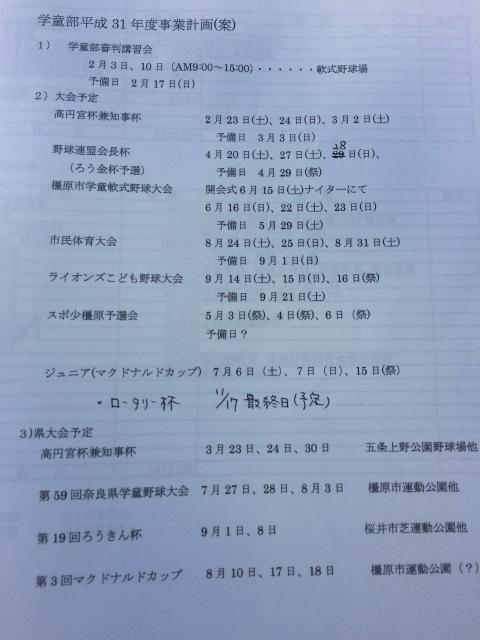 学童部平成31年度事業計画(案)
1） 学童部審判講習会
2月3日、10日（AM9:00～15:00）・・・・・・軟式野球場
予備日 2月17日(日)
2）大会予定
高円宮杯兼知事杯 2月23日(土)、24日(日)、3月2日(土)
予備日 3月3日(日)
28
野球連盟会長杯 4月20日(土)、27日(土)、29日(日)、
（ろう金杯予選） 予備日 4月29日(祭)
橿原市学童軟式野球大会 開会式6月15日(土)ナイターにて
6月16日(日)、22日(土)、23日(日)
予備日 5月29日(土)
市民体育大会 8月24日(土)、25日(日)、8月31日(土)
予備日 9月1日(日)
ライオンズこども野球大会 9月14日(土)、15日(日)、16日(祭)
予備日 9月21日(土)
スポ少橿原予選会 5月3日(祭)、4日(祭)、6日（祭)
予備日？
ジュニア(マクドナルドカップ) 7月6日（土)、7日（日)、15日(祭)
・ロータリー杯 11/17 最終日(予定)
3)県大会予定
高円宮杯兼知事杯 3月23日、24日、30日 五条上野公園野球場他
第59回奈良県学童野球大会 7月27日、28日、8月3日 橿原市運動公園他
第19回ろうきん杯 9月1日、8日 桜井市芝運動公園他
第3回マクドナルドカップ 8月10日、17日、18日 橿原市運動公園（？）